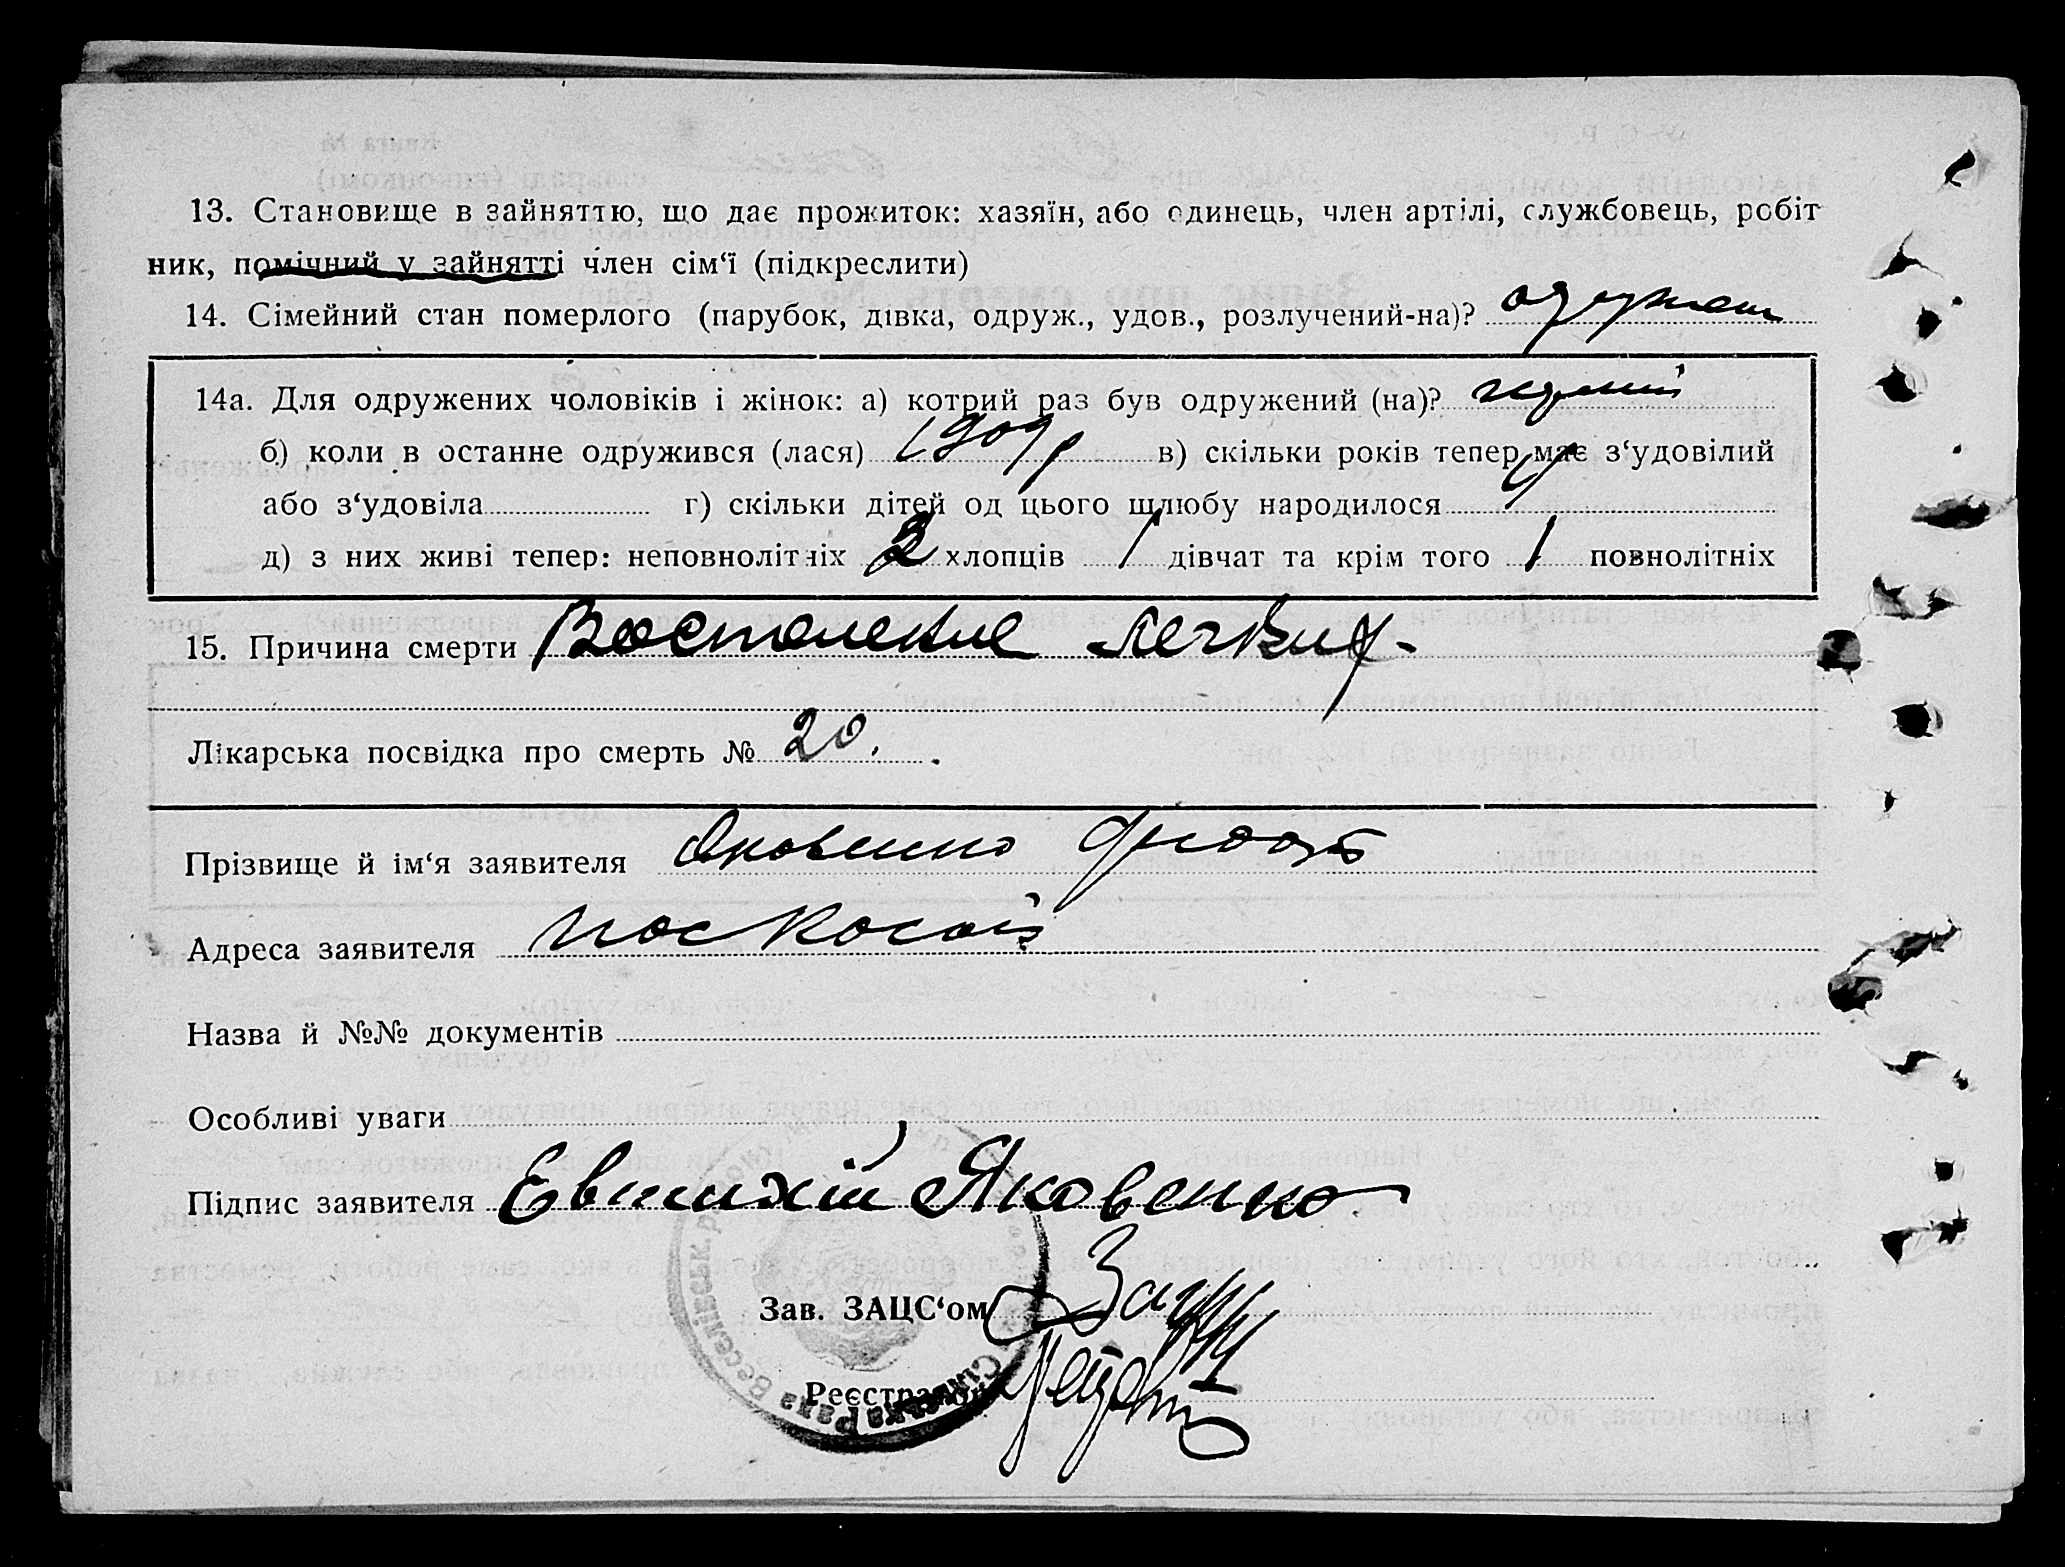 13. Становище в зайняттю, що дає прожиток: хазяїн, або одинець, член артілі, службовець, робіт
ник, помічний у зайнятті член сім‘ї (підкреслити)
14. Сімейний стан померлого (парубок, дівка, одруж., удов., розлучений-на)? одружен
14а. Для одружених чоловіків і жінок: а) котрий раз був одружений (на)?
б) коли в останне одружився (лася) 1909 р в) скільки років тепер має з‘удовілий
або з‘удовіла г) скільки дітей од цього шлюбу народилося 4
д) з них живі тепер: неповнолітніх 2 хлопців 1 дівчат та крім того 1 повнолітніх
15. Причина смерти Воспаление
Лікарська посвідка про смерть № 20.
Прізвище й ім‘я заявителя Яковенко
Адреса заявителя
Назва й №№ документів
Особливі уваги
Підпис заявителя Евтихій Яковенко
Зав. ЗАЦС‘ом
Реєстратор